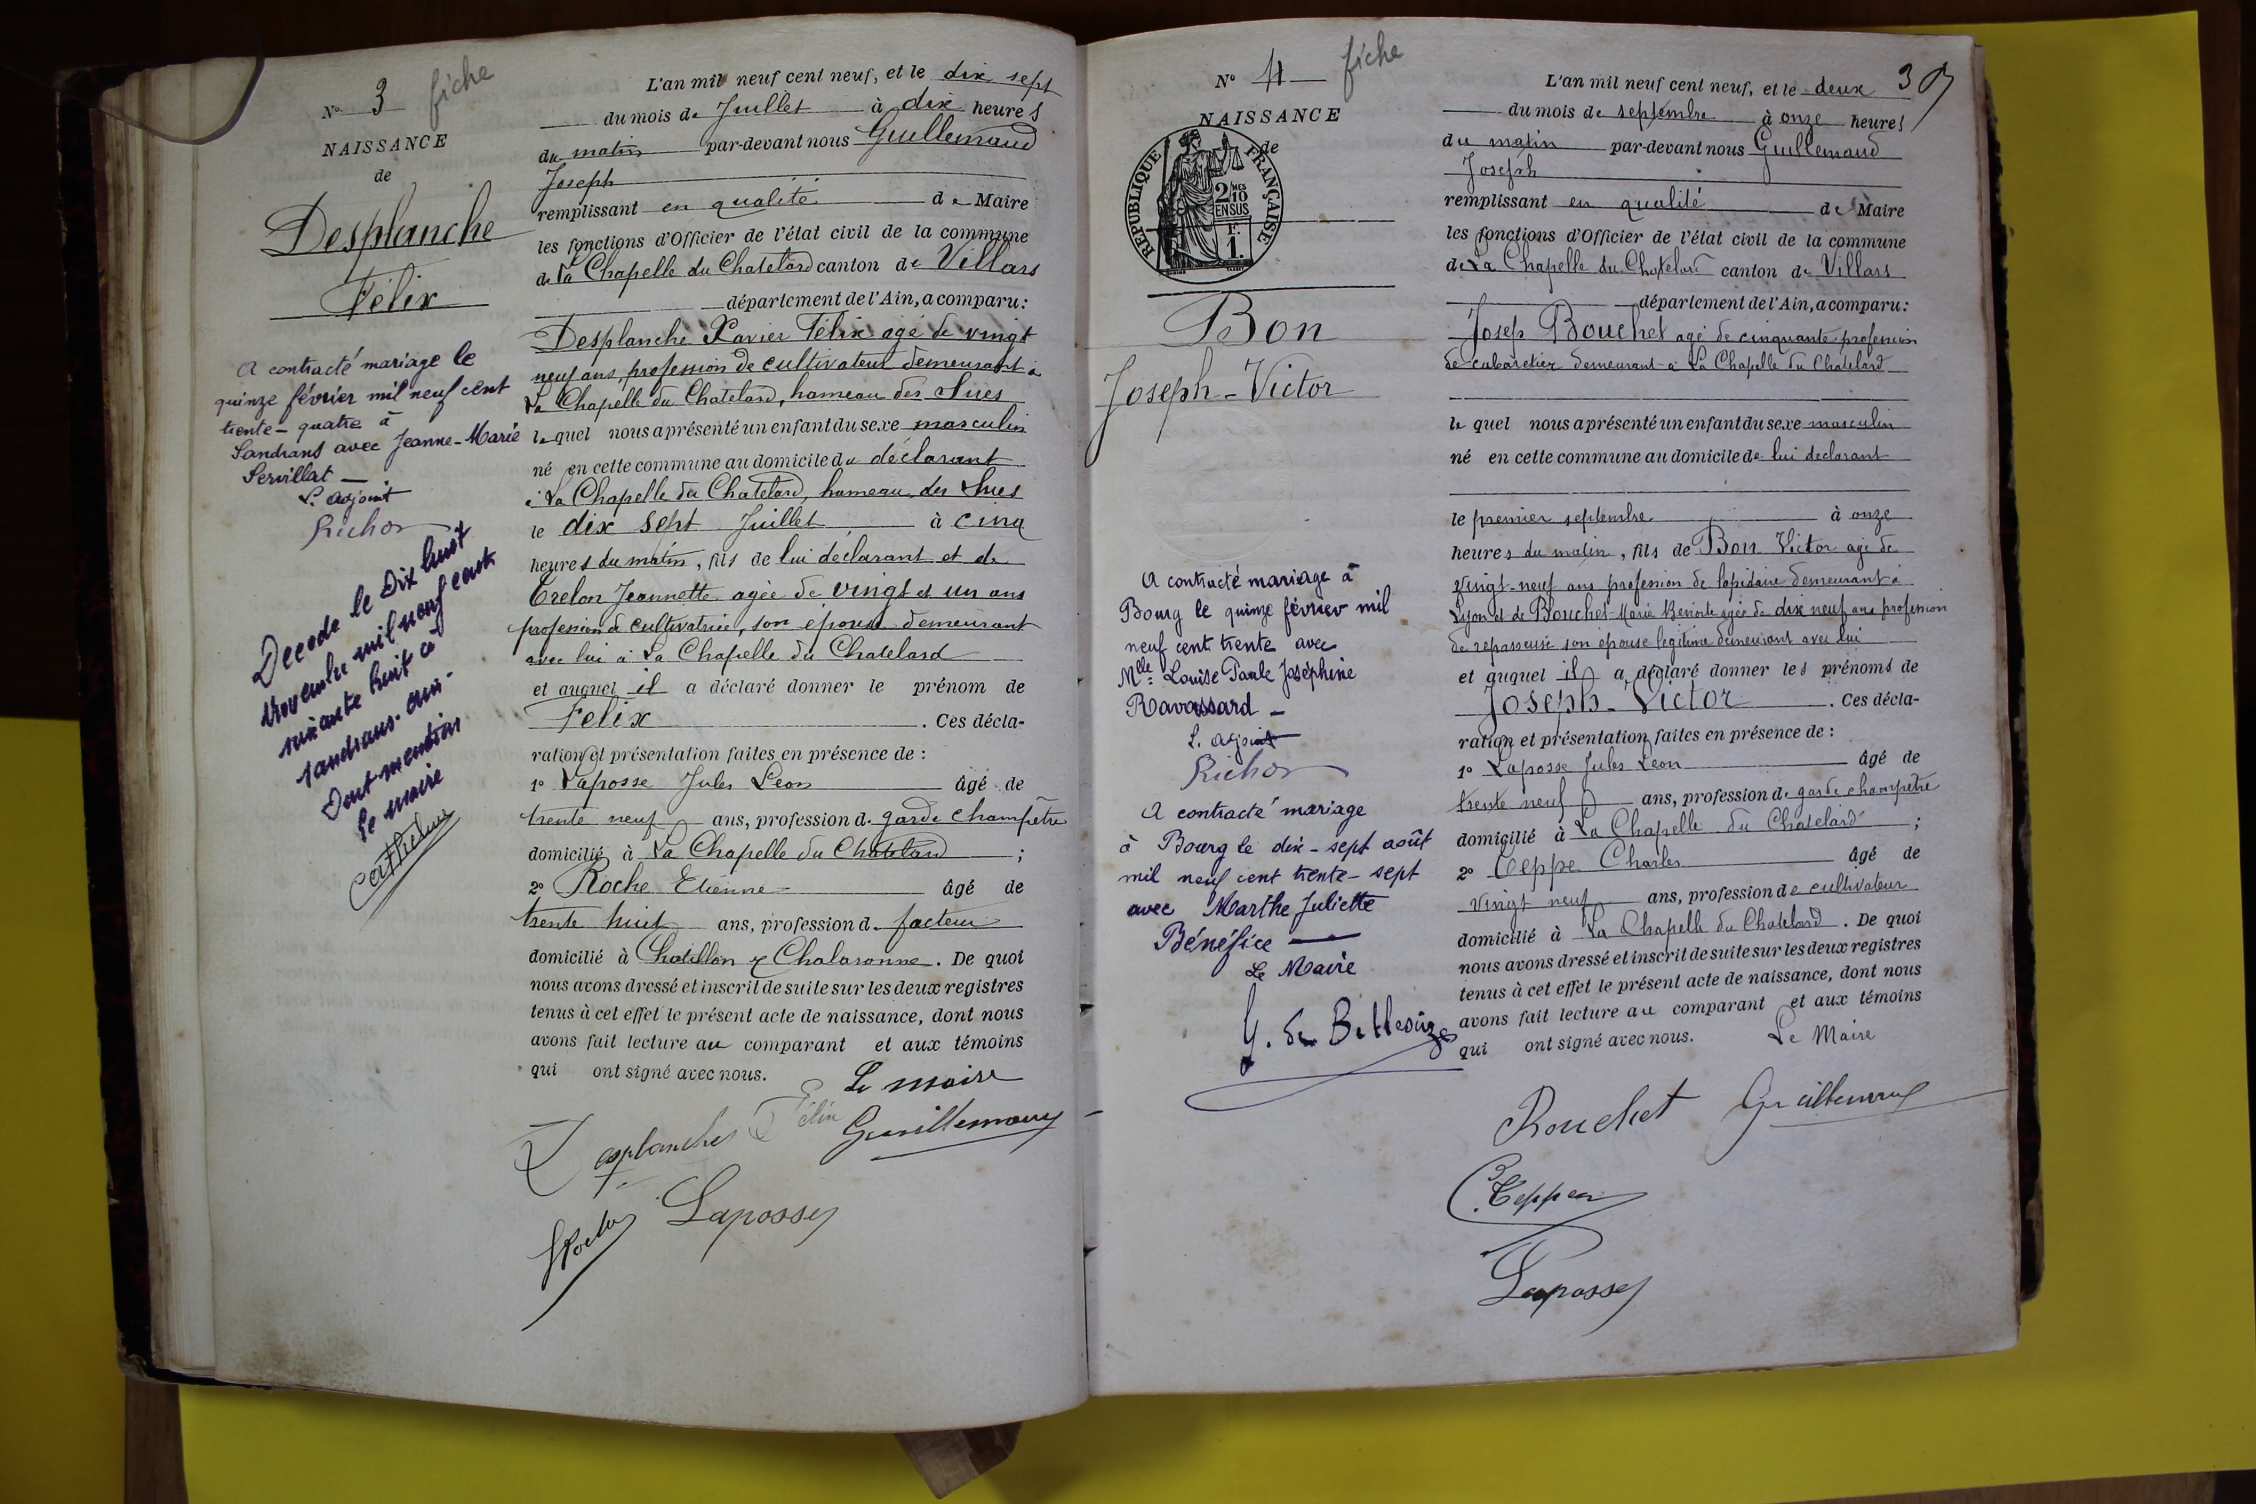 N° 3 fiche
NAISSANCE
de
Desplanche
Félix
A contracté mariage le
quinze février mil neuf cent
trente-quatre à
Sandrans avec Jeanne-Marie
Servillat —
L. adjoint
Richon
Decede le Dix huit
novembre mil neuf cent
soixante huit à
sandrans. ain.
Dont mention
Le maire
L'an mil neuf cent neuf, et le dix sept
du mois de Juillet à dix heures
du matin par-devant nous Guillemaud
Joseph
remplissant en qualité de Maire
les fonctions d'Officier de l'état civil de la commune
de La Chapelle du Chatelard canton de Villars
département de l'Ain, a comparu :
Desplanche Xavier Félix agé de vingt
neuf ans, profession de cultivateur demeurant à
La Chapelle du Chatelard, hameau des
lequel nous a présenté un enfant du sexe masculin
né en cette commune au domicile du déclarant
à La Chapelle du Chatelard, hameau des
le dix sept Juillet à cinq
heures du matin, fils de lui déclarant et de
Trelon Jeannette agée de vingt et un ans
profession de cultivatrice, son épouse demeurant
avec lui à La Chapelle du Chatelard
et auquel il a déclaré donner le prénom de
Felix . Ces décla-
ration et présentation faites en présence de :
1° Laposse Jules Leon âgé de
trente neuf ans, profession de garde champêtre
domicilié à La Chapelle du Chatelard ;
2° Roche Etienne âgé de
trente huit ans, profession de facteur
domicilié à Chatillon s/ Chalaronne. De quoi
nous avons dressé et inscrit de suite sur les deux registres
tenus à cet effet le présent acte de naissance, dont nous
avons fait lecture au comparant et aux témoins
qui ont signé avec nous.
Le maire
Desplanche Félix Guillemaud
Roche Laposse
N° 4 fiche
NAISSANCE
de
REPUBLIQUE FRANÇAISE
2/10 MES
EN SUS
F.
1.
Bon
Joseph-Victor
A contracté mariage à
Bourg le quinze février mil
neuf cent trente avec
Mlle Louise Paule Joséphine
Ravassard —
L. adjoint
Richon
A contracté mariage
à Bourg le dix-sept août
mil neuf cent trente-sept
avec Marthe Juliette
Bénéfice —
Le Maire
L'an mil neuf cent neuf, et le deux
du mois de septembre à onze heures
du matin par-devant nous Guillemaud
Joseph
remplissant en qualité de Maire
les fonctions d'Officier de l'état civil de la commune
de La Chapelle du Chatelard canton de Villars
département de l'Ain, a comparu :
Joseph Bouchet agé de cinquante profession
de cabaretier demeurant à La Chapelle du Chatelard
le quel nous a présenté un enfant du sexe masculin
né en cette commune au domicile de lui declarant
le premier septembre à onze
heures du matin, fils de Bon Victor agé de
vingt-neuf ans profession de lapidaire demeurant à
Lyon et de Bouchet Marie Benoite agée de dix neuf ans profession
de repasseuse son épouse legitime demeurant avec lui
et auquel il a déclaré donner les prénoms de
Joseph-Victor . Ces décla-
ration et présentation faites en présence de :
1° Laposse Jules Leon âgé de
trente neuf ans, profession de garde champêtre
domicilié à La Chapelle du Chatelard ;
2° Teppe Charles âgé de
vingt neuf ans, profession de cultivateur
domicilié à La Chapelle du Chatelard. De quoi
nous avons dressé et inscrit de suite sur les deux registres
tenus à cet effet le présent acte de naissance, dont nous
avons fait lecture au comparant et aux témoins
qui ont signé avec nous. Le Maire
Bouchet Guillemaud
C. Teppe
Laposse